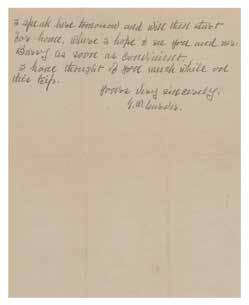 I speak here tomorrow and will then start
for home, where I hope to see you and Mr.
Barry as soon as convenient.
I have thought of you much while on
this trip.
Yours very sincerely,
G.W.